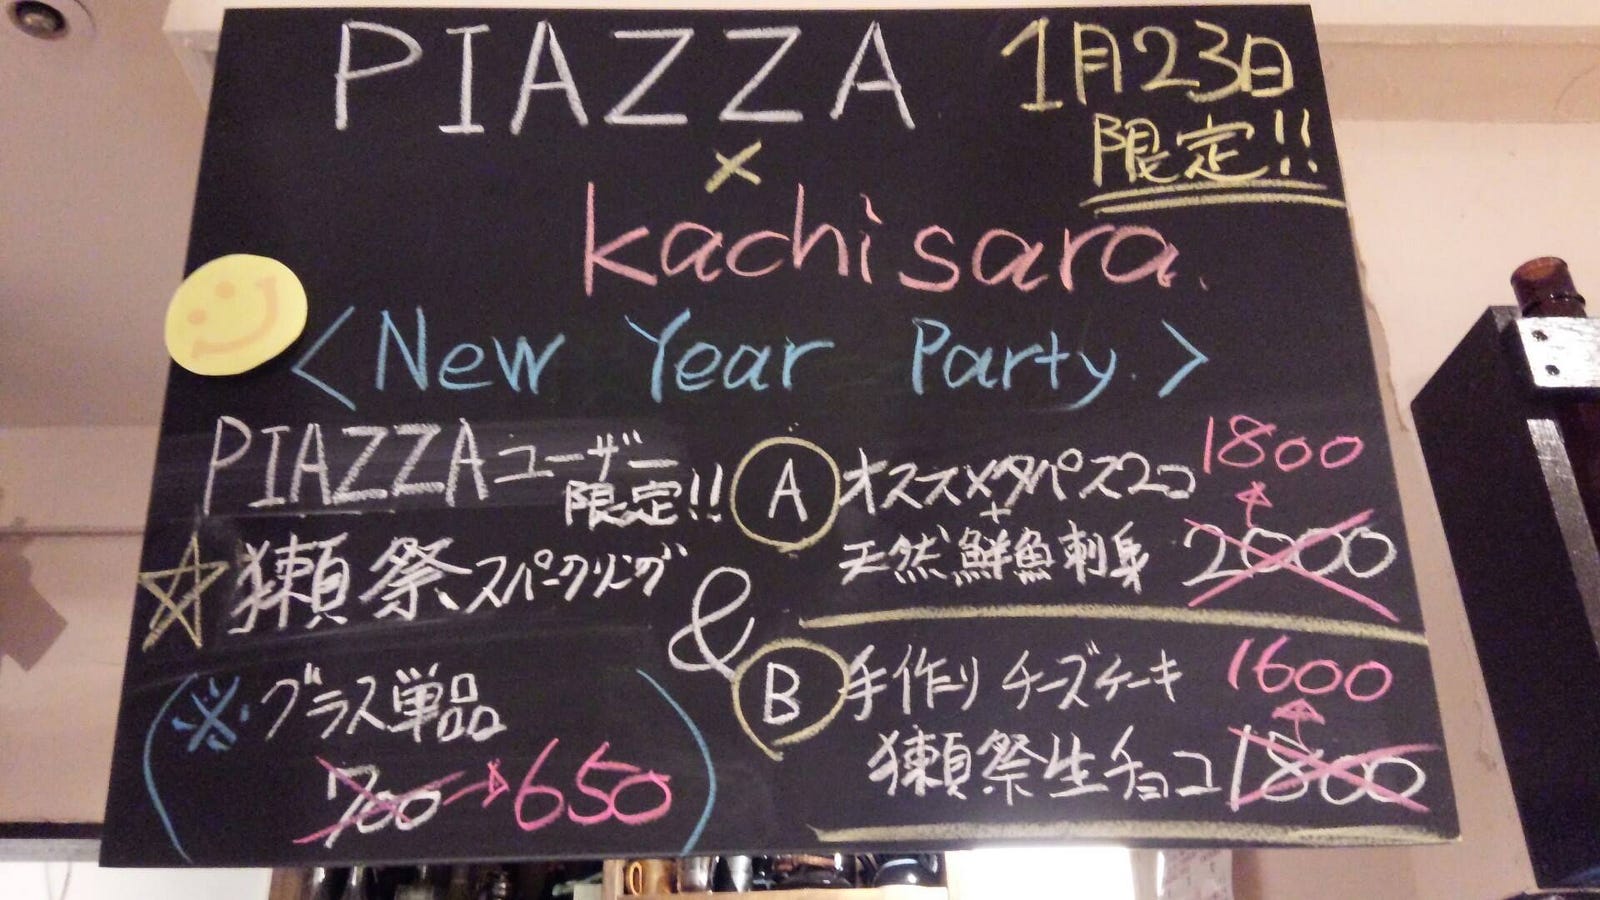 PIAZZA
×
kachisara.
1月23日
限定!!
<New Year Party.>
PIAZZAユーザー
限定!!
☆獺祭スパークリング
※グラス単品
700→650
&
A オススメタパス2コ 1800
+
天然鮮魚刺身 2000
B 手作りチーズケーキ 1600
獺祭生チョコ 1800